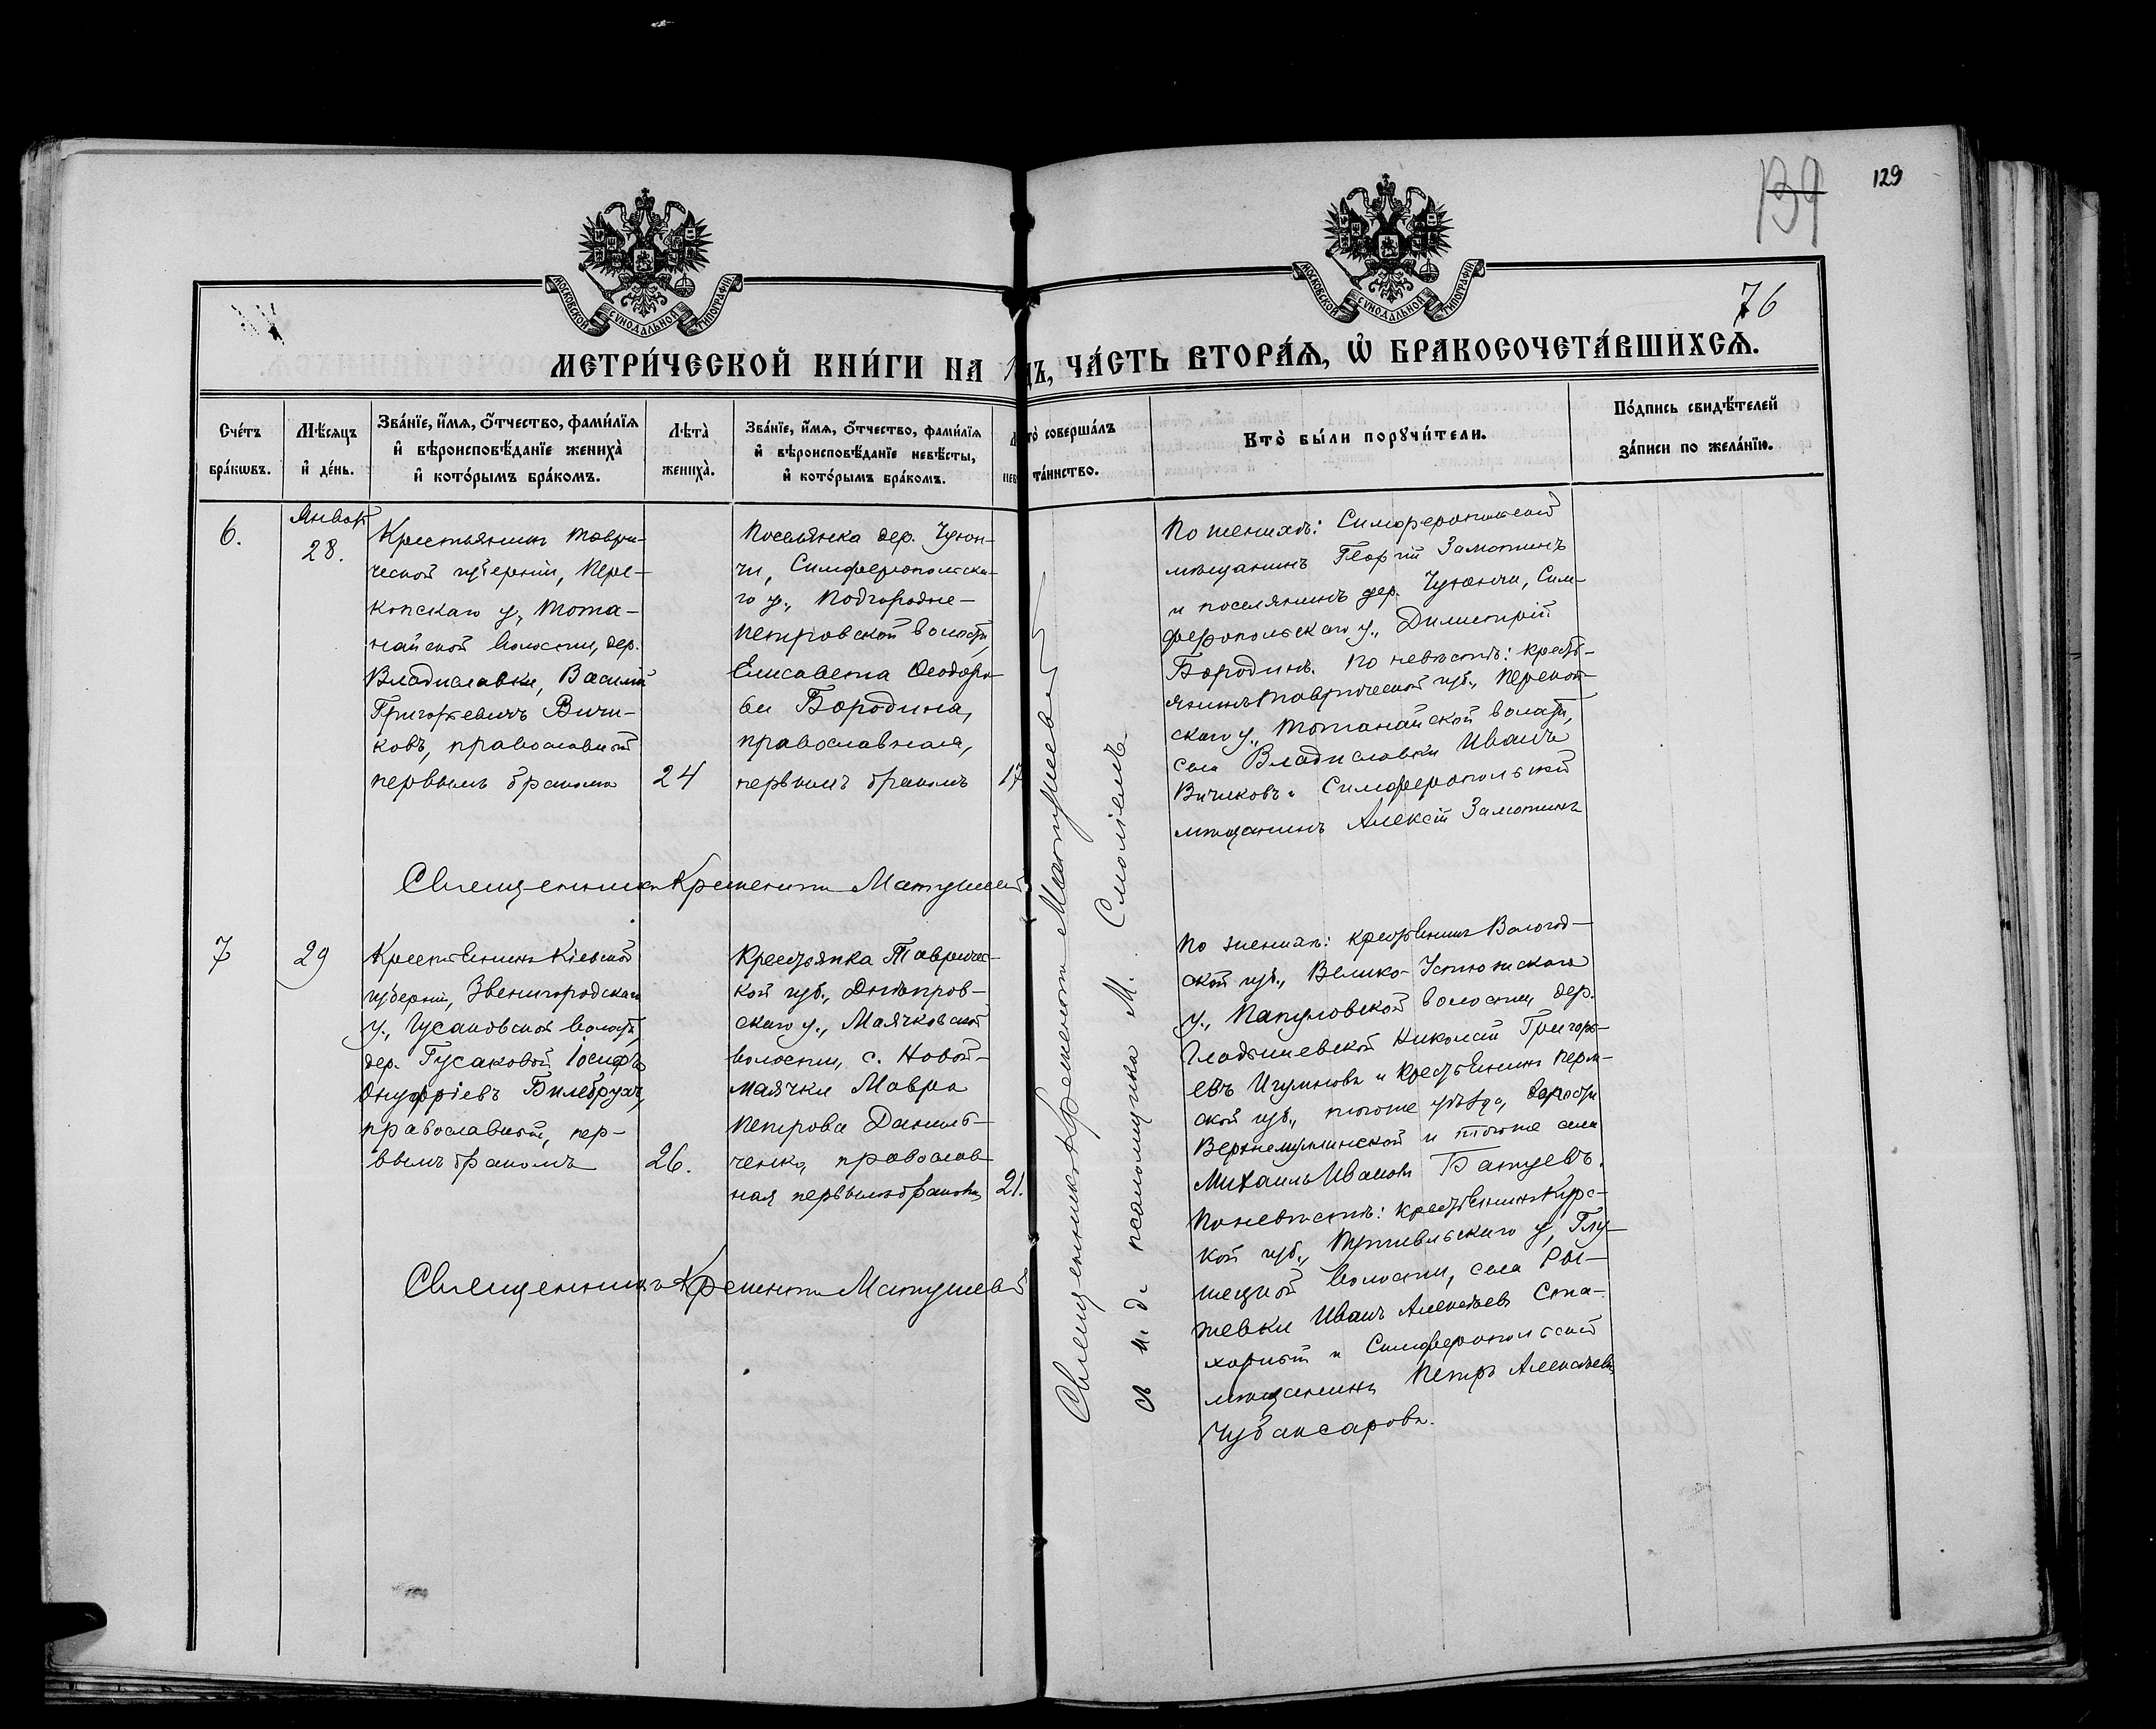 129
139
76
МОСКОВСКОЙ СѴНОДАЛЬНОЙ ТИПОГРАФІИ
МОСКОВСКОЙ СѴНОДАЛЬНОЙ ТИПОГРАФІИ
МЕТРИ́ЧЕСКОЙ КНИ́ГИ НА 1
дъ, ЧА́СТЬ ВТОРА́Ѧ, Ѽ БРАКОСОЧЕТА́ВШИХСѦ.
Сче́тъ
бра́кѡвъ.
Мѣ́сѧцъ
и҆ де́нь.
Зва́нїе, и҆́мѧ, ѻ҆́тчество, фами́лїѧ
и҆ вѣроисповѣ́данїе жениха̀
и҆ кото́рымъ бра́комъ.
Лѣта̀
жениха̀.
Зва́нїе, и҆́мѧ, ѻ҆́тчество, фами́лїѧ
и҆ вѣроисповѣ́данїе невѣ́сты,
и҆ кото́рымъ бра́комъ.
то̀ соверша́лъ
та́инство.
Кто̀ бы́ли порꙋчи́тели.
По́дпись свидѣ́телей
за́писи по жела́нїю.
6.
Январь
28.
Крестьянинъ Таври-
ческой губерніи, Пере-
копскаго у., Тота-
найской волости, дер.
Владиславки, Василій
Григорьевичъ Вичи-
ковъ, православный
первымъ бракомъ
24
Поселянка дер. Чуюн-
чи, Симферопольска-
го у., Подгородне-
Петровской волости,
Елисавета Ѳеодоро-
ва Бородина,
православная,
первымъ бракомъ
17
По женихѣ: Симферопольскій
мѣщанинъ Георгій Замотинъ
и поселянинъ дер. Чуюнчи, Сим-
феропольскаго у., Димитрій
Бородинъ. По невѣстѣ: крест-
янинъ Таврической губ., Перекоп-
скаго у., Тотанайской волости,
села Владиславки Иванъ
Вичиковъ и Симферопольскій
мѣщанинъ Алексѣй Замотинъ
Священникъ Крискентъ Матушевъ
7
29
Крестьянинъ Кіевской
губерніи, Звенигородскаго
у., Гусаковской волости,
дер. Гусаковой Іосифъ
Онуфріевъ Билебрухъ,
православный, пер-
вымъ бракомъ
26.
Крестьянка Тавричес-
кой губ., Днѣпров-
скаго у., Маячковской
волости, с. Новой-
маячки Мавра
Петрова Даниль-
ченко, православ-
ная первымъ бракомъ
21.
По женихѣ: крестьянинъ Вологод-
ской губ., Велико-Устюжскаго
у., Папуловской волости, дер.
Гладышевской Николай Григорь-
евъ Игумновъ и крестьянинъ Перм-
ской губ., того же уѣзда, волости
Верхнемуллинской и того же села
Михаилъ Ивановъ Батуевъ.
По невѣстѣ: крестьянинъ Курс-
кой губ., Путивльскаго у., Глу-
шецкой волости, села Ры-
жевки Иванъ Алексѣевъ Ста-
хорный и Симферопольскій
мѣщанинъ Петръ Алексѣевъ
Чубаксаровъ.
Священникъ Крискентъ Матушевъ
Священникъ Крискентъ Матушевъ
съ и. д. псаломщика М. Смоліемъ